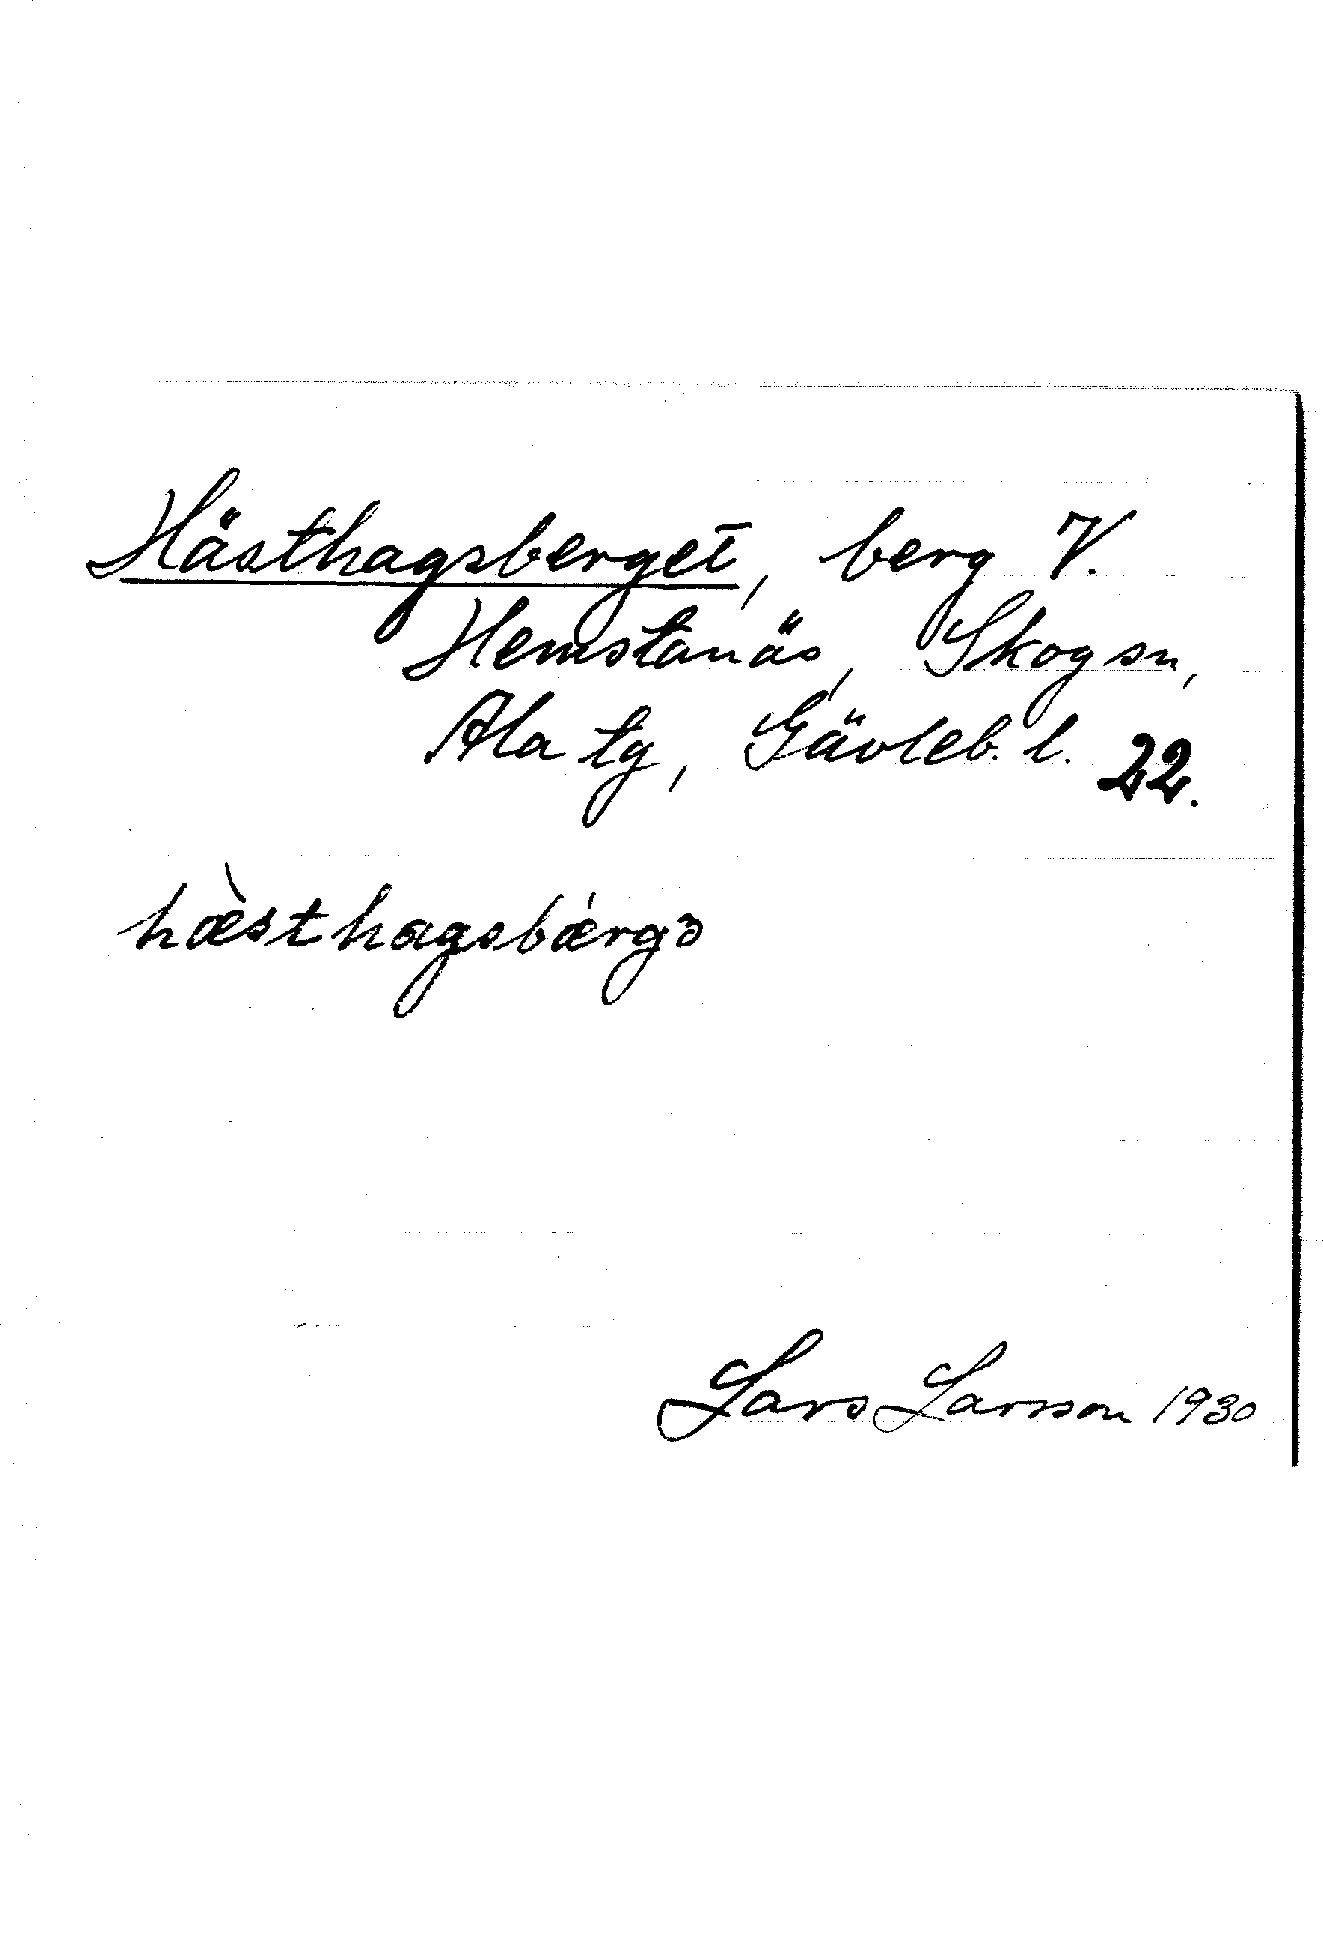 Hästhagsberget, berg V.
Hemstanäs, Skog sn,
Ala tg, Gävleb. l. 22.
hæ̀sthagsbǽrgə
Lars Larsson 1930